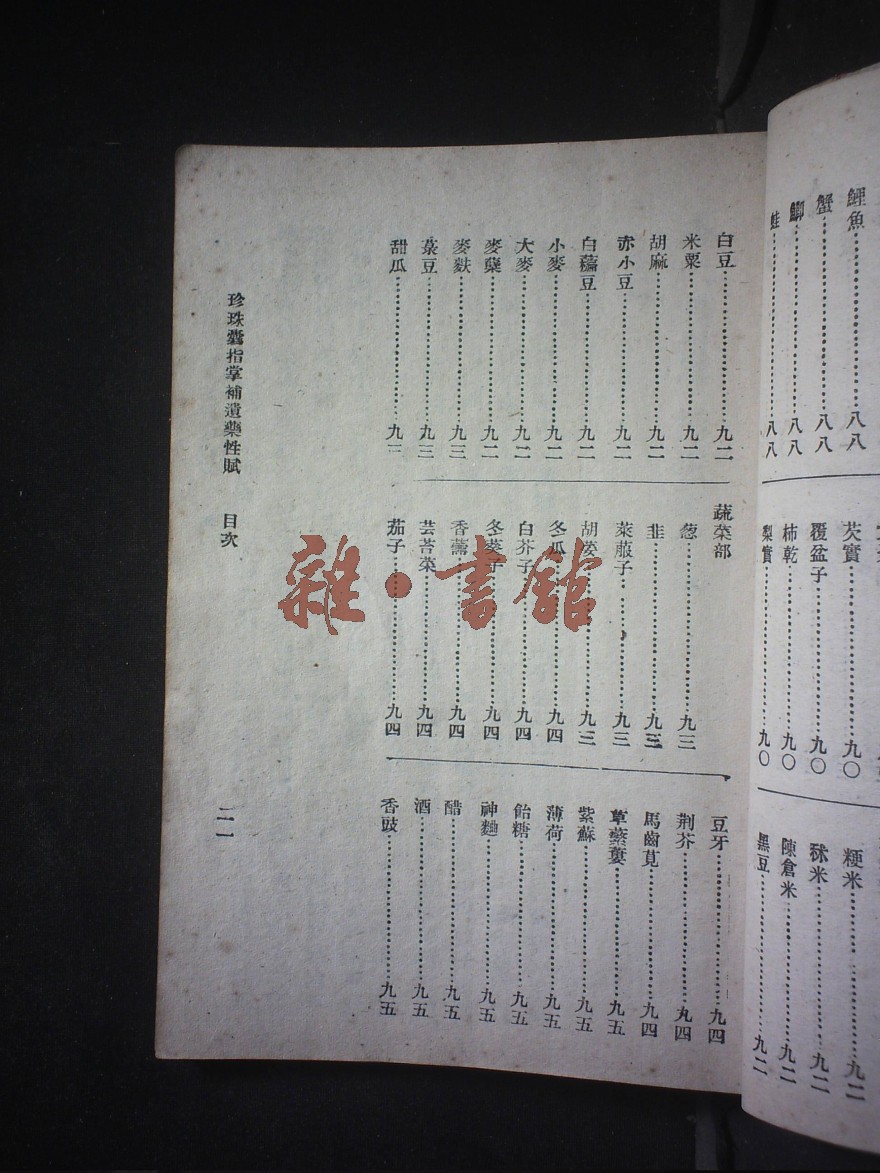 鯉魚……八八
蟹……八八
鯽……八八
蛙……八八
芡實……九〇
覆盆子……九〇
柿乾……九〇
梨實……九〇
粳米……九二
秫米……九二
陳倉米……九二
黑豆……九二
白豆……九二
米粟……九二
胡麻……九二
赤小豆……九二
白藊豆……九二
小麥……九二
大麥……九二
麥櫱……九二
麥麩……九三
菉豆……九三
甜瓜……九三
蔬菜部
葱……九三
韭……九三
萊菔子……九三
胡荽……九三
冬瓜……九四
白芥子……九四
冬葵子……九四
香薷……九四
芸苔菜……九四
茄子……九四
豆牙……九四
荆芥……九四
馬齒莧……九四
蘩蔞……九五
紫蘇……九五
薄荷……九五
飴糖……九五
神麯……九五
醋……九五
酒……九五
香豉……九五
珍珠囊指掌補遺藥性賦 目次
二一
雜·書館